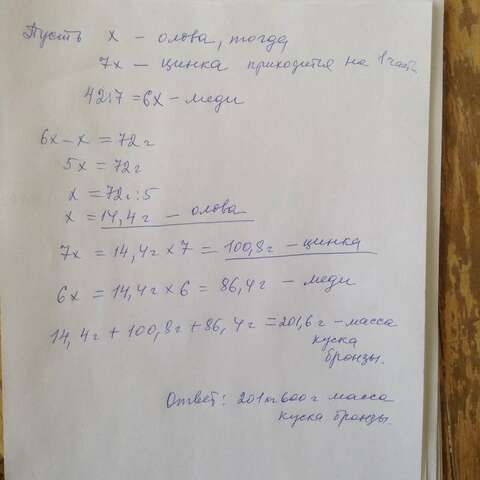 Пусть x – олова, тогда,
7x – цинка приходится на 1 часть
42:7 = 6x – меди
6x – x = 72г
5x = 72г
x = 72г:5
x = 14,4г – олова
7x = 14,4г x 7 = 100,8г – цинка
6x = 14,4г x 6 = 86,4г – меди
14,4г + 100,8г + 86,4г = 201,6г – масса
куска
бронзы.
Ответ: 201 600г масса
куска бронзы.